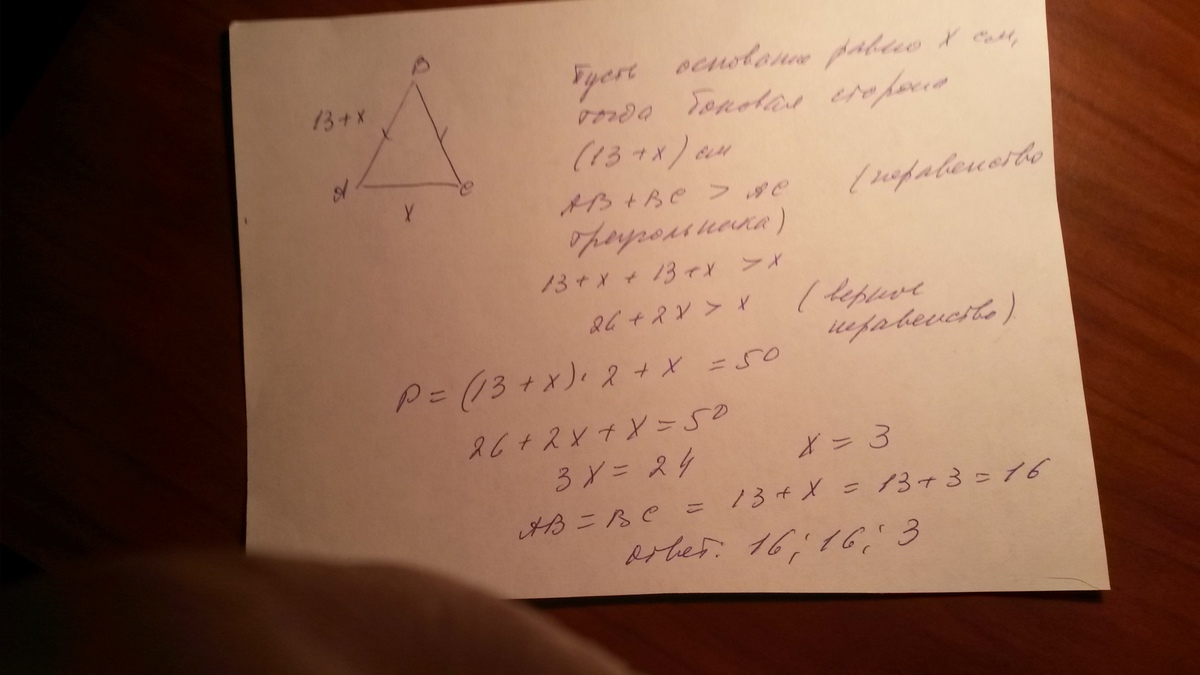 B
13+x
A
C
x
Пусть основание равно x см,
тогда боковая сторона
(13+x) см
AB+BC > AC (неравенство
треугольника)
13+x+13+x >x
26+2x > x (верное
неравенство)
P=(13+x)·2+x =50
26+2x+x=50
3x=24 x=3
AB=BC = 13+x=13+3=16
Ответ: 16; 16; 3